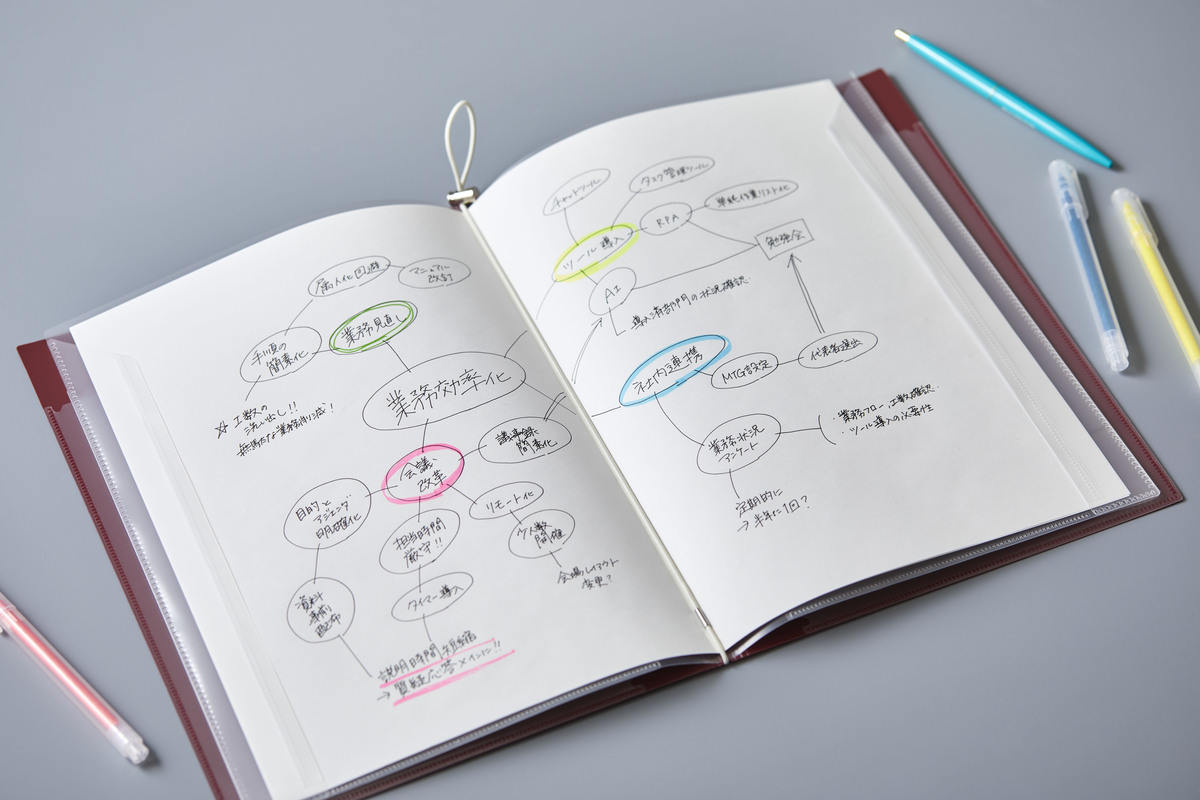 属人化回避
マニュアル
改訂
業務見直し
手順の
簡素化
☆ 工数の
洗い出し!!
無駄な業務削減!
業務効率化
会議
改革
議事録
簡素化
目的と
アジェンダ
明確化
担当時間
厳守!!
リモート化
少人数
開催
会場レイアウト
変更?
資料
事前
配布
タイマー導入
説明時間短縮
→ 質疑応答メインに!!
チャットツール
タスク管理ツール
RPA
単純作業リスト化
ツール導入
勉強会
AI
導入済部門の状況確認
社内連携
MTG設定
代表者選出
業務状況
アンケート
・業務フロー、工数確認
・ツール導入の必要性
定期的に
→ 半年に1回?